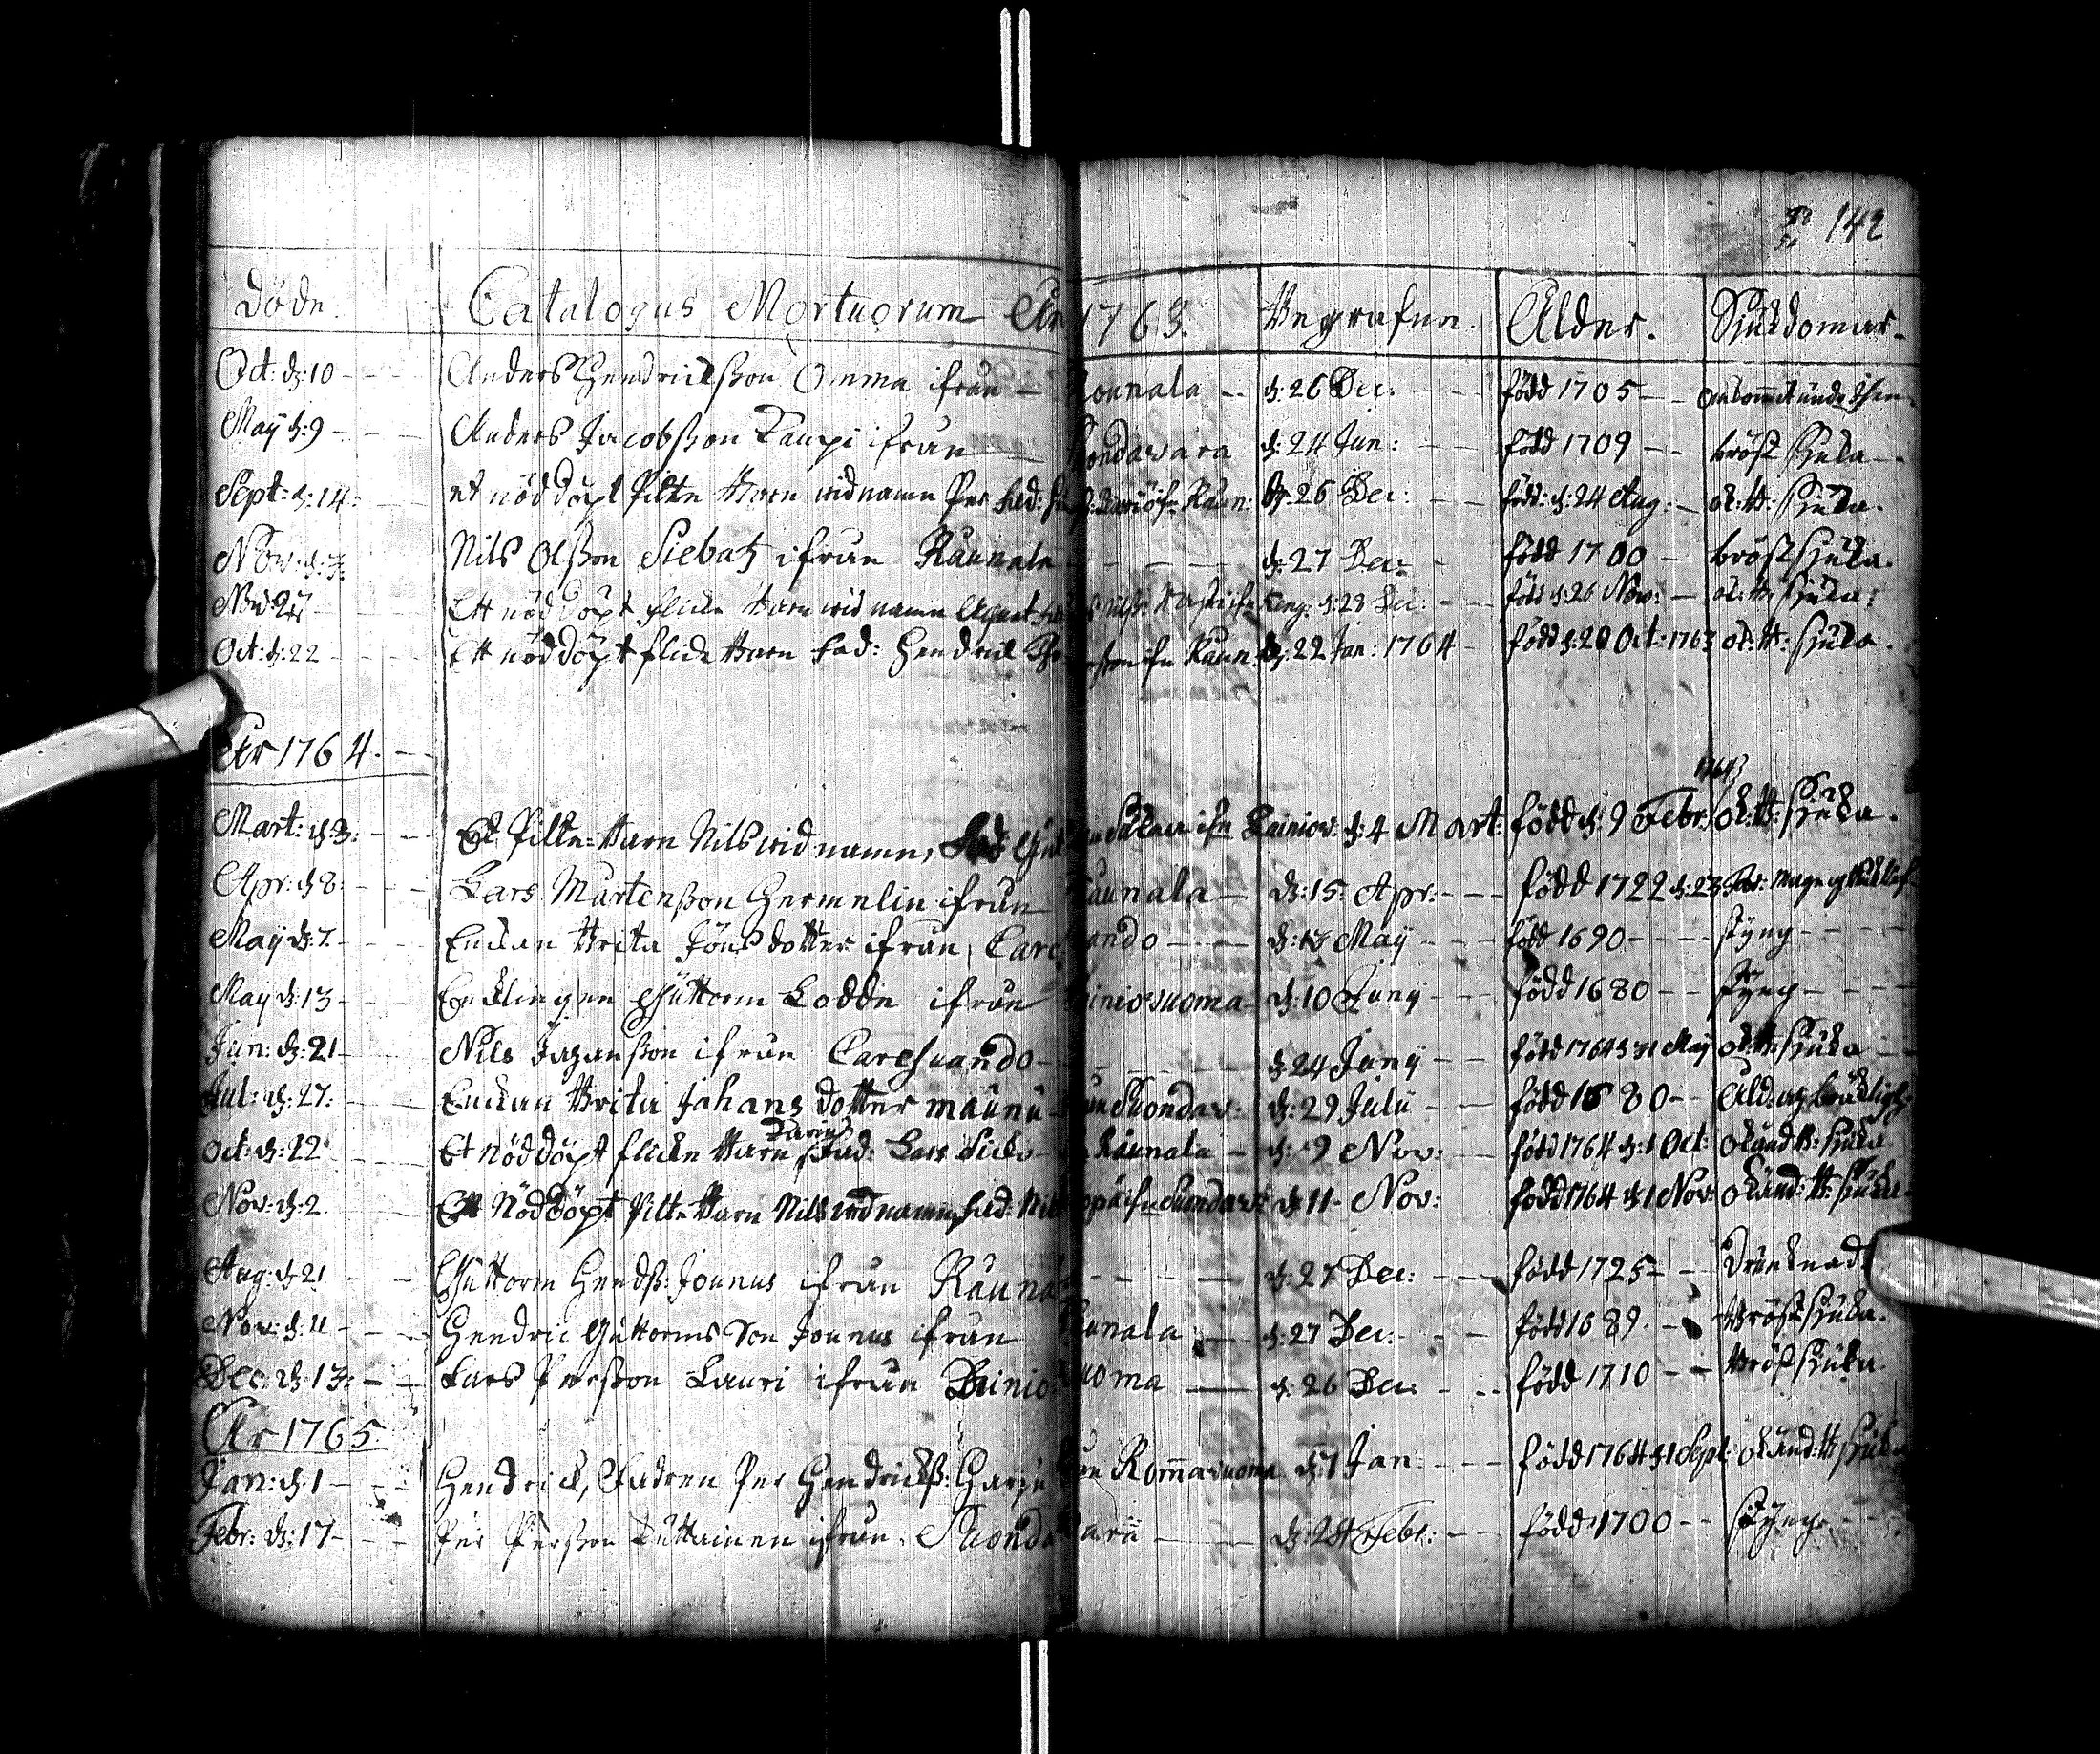 142
Döde. Catalogus Mortuorum År 1763. Begrafne. Ålder. Sjukdomar.
Oct: d: 10 --- Anders Hendrichßon Omma ifrån - Rounala -- d: 26 Dec: --- född 1705 --
Maÿ d: 9 --- Anders Jacobßon Kaupi ifrån Suondavara d: 24 Jun: --- född 1709 -- bröst sjuka --
Sept: d: 14: et nöddöpt Pilte Barn vid namn Per fad: Raun: d: 26 Dec: --- född: d: 24 Aug: -- ok: B: Sjuka.
Nov: d: 3: Nils Olßon Siebatz ifrån Raunala --- d: 27 Dec: - född 1700 - bröstsjuka.
Nov 27 Ett nöddöpt flicke Barn vid namn d: 28 Dec: -- född d: 26 Nov: -- ok: B: sjuka:
Oct: d: 22 ---- Ett nöddöpt flicke Barn fad: Hendrick ifn Raun: d: 22 Jan: 1764 - född d: 20 Oct: 1763 ok: B: sjuka.
År 1764. --
Mart: d 3: --- Et Pilte-Barn Nils vid namn, ifn Lainiov: d: 4 Mart: född d: 9 Febr: ok: B: sjuka.
Apr: d 8: ---- Lars Mårtenßon Hermelin ifrån Raunala -- d: 15 Apr: --- född 1722 d: 23
Maÿ d: 7. --- Enckan Brita Jönsdotter ifrån Caresuando --- d: 13 Maÿ --- född 1690 ---- styng ----
Maÿ d: 13 --- Encklingen Guttorm Lodde ifrån Lainiosuoma d: 10 Junÿ --- född 1680 -- styng ----
Jun: d: 21 --- Nils ifrån Caresuando --- d: 24 Junÿ -- född 1764 d 31 Maÿ ok: B: sjuka --
Jul: d: 27. --- Enckan Brita Johans dotter maunu från Suondav: d: 29 Julii -- född 1680 --
Oct: d: 22 --- Et nöddöpt flicke Barn Karin, fad: Lars Raunala - d: 9 Nov: -- född 1764 d: 1 Oct: okänd B: sjuka
Nov: d: 2 Ett Nöddöpt Pilte Barn Nils vid namn, fad: Nils ifn Suondav: d: 11 - Nov: född 1764 d 1 Nov: okänd: B: sjuka.
Aug: d: 21 --- Guttorm Hendß: Jounus ifrån Raunala ---- d: 27 Dec: --- född 1725 -- Drunknad
Nov: d: 11 ---- Hendric Guttorms Son Jounus ifrån Raunala -- d: 27 Dec: - - född 1689. -- Bröstsjuka.
Dec: d: 13: -- Lars Perßon Lauri ifrån Lainiosuoma -- d: 26 Dec: - -- född 1710 -- Bröstsjuka.
År 1765.
Jan: d: 1 --- Hendrick, Fadren Per Hendrickß: Romavuoma d: 1 Jan: --- född 1764 d 1 Sept: okänd: B: sjuka
Febr: d: 17 --- Per Perßon Kuttainen ifrån Suondavara --- d: 24 Febr: -- född 1700 -- styng.